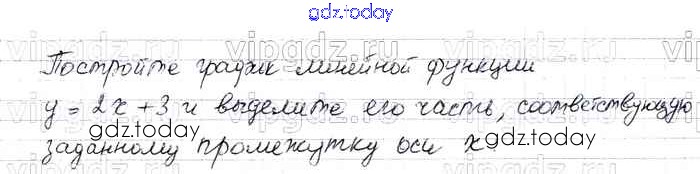 gdz.today
vipgdz.ru vipgdz.ru vipgdz.ru
Постройте график линейной функции
y = 2x + 3 и выделите его часть, соответствующую
gdz.today gdz.today
заданному промежутку оси x.